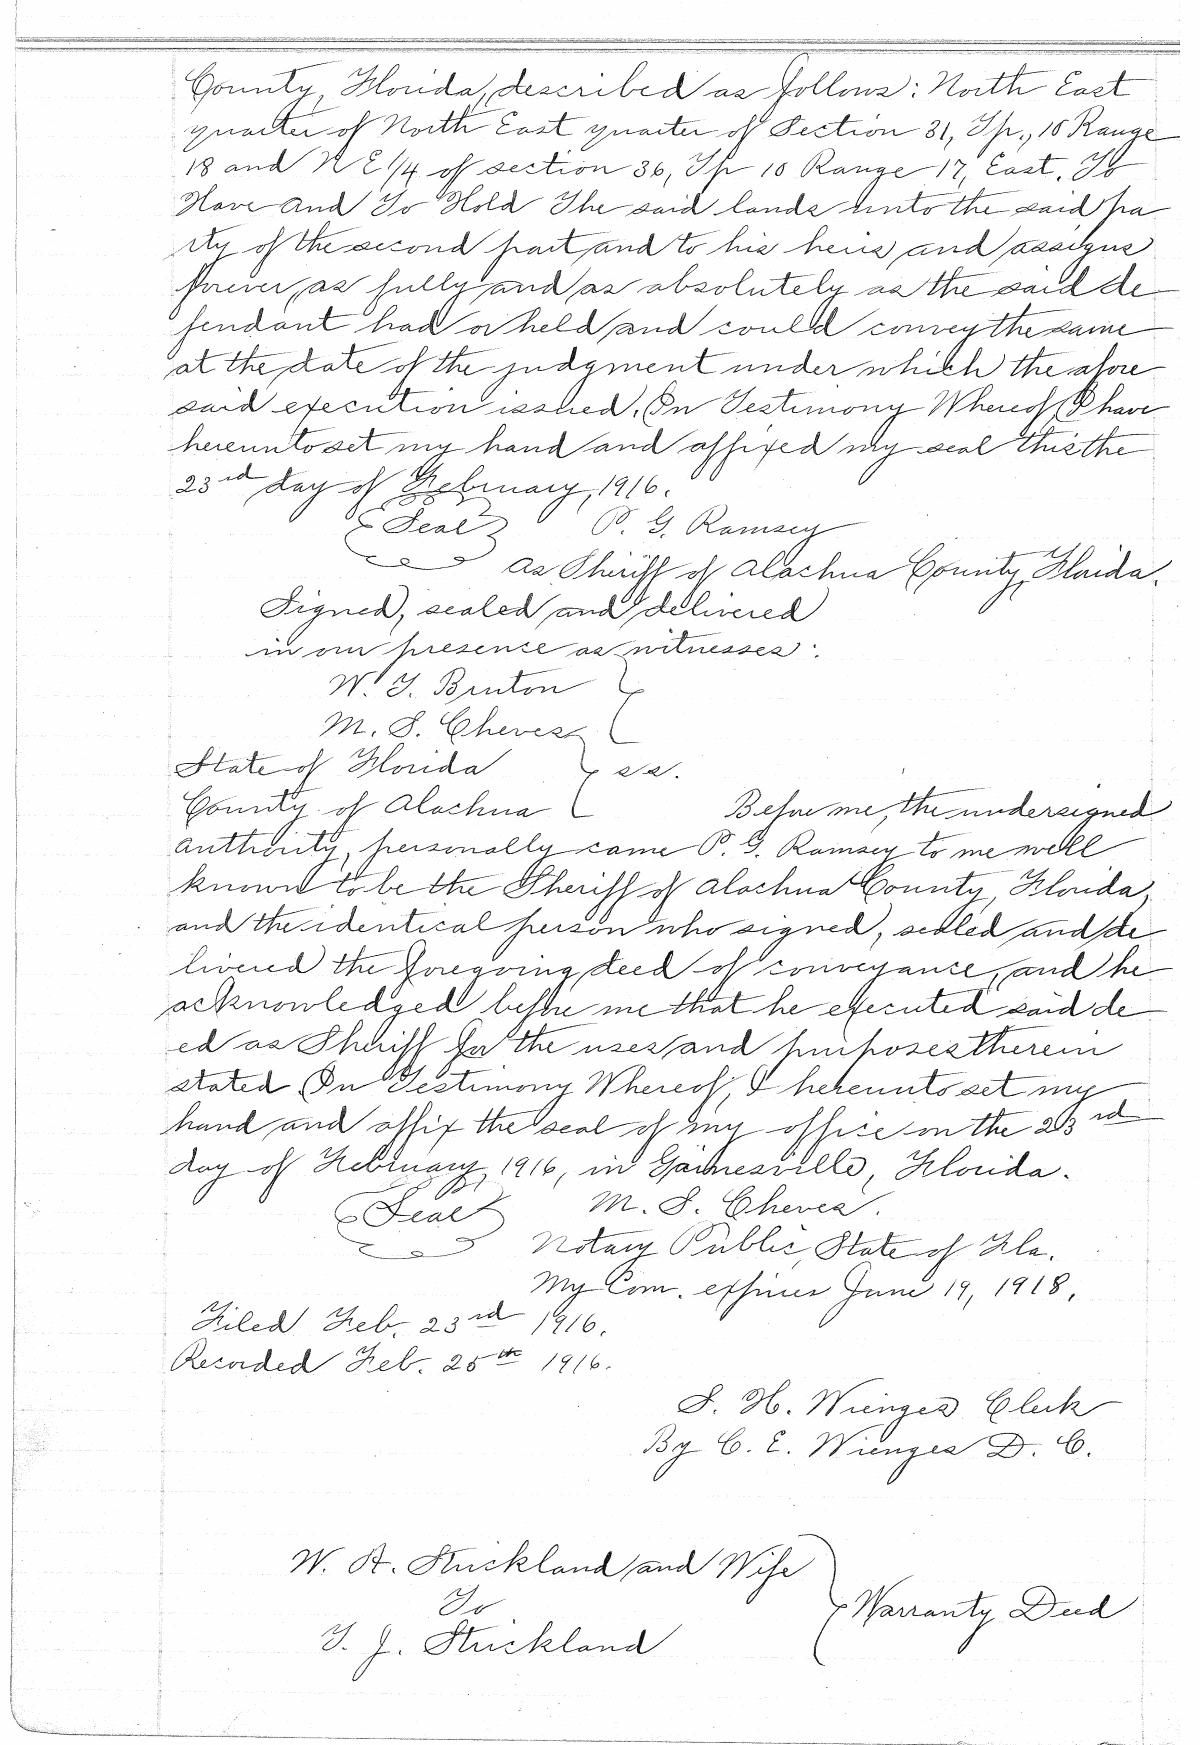 County, Florida, described as follows: North East
quarter of North East quarter of Section 31, Tp., 10 Range
18 and N E 1/4 of section 36, Tp 10 Range 17, East. To
Have and To Hold The said lands unto the said pa
rty of the second part, and to his heirs, and assigns
forever, as fully and as absolutely as the said de
fendant had or held and could convey the same
at the date of the judgment under which the afore
said execution issued. In Testimony Whereof, I have
hereunto set my hand and affixed my seal this the
23rd day of February, 1916.
Seal P. G. Ramsey
As Sheriff of Alachua County, Florida.
Signed, sealed and delivered
in our presence as witnesses:
W. T. Bruton
M. S. Cheves
State of Florida ss.
County of Alachua Before me, the undersigned
authority, personally came P. G. Ramsey to me well
known to be the Sheriff of Alachua County, Florida,
and the identical person who signed, sealed and de
livered the foregoing deed of conveyance, and he
acknowledged before me that he executed said de
ed as Sheriff for the uses and purposes therein
stated In Testimony Whereof, I hereunto set my
hand and affix the seal of my office on the 23rd
day of February, 1916, in Gainesville, Florida.
Seal M. S. Cheves.
Notary Public, State of Fla.
My Com. expires June 19, 1918.
Filed Feb. 23rd 1916.
Recorded Feb. 25th 1916.
S. H. Wienges Clerk
By C. E. Wienges D. C.
W. A. Strickland and Wife
To
Warranty Deed
T. J. Strickland